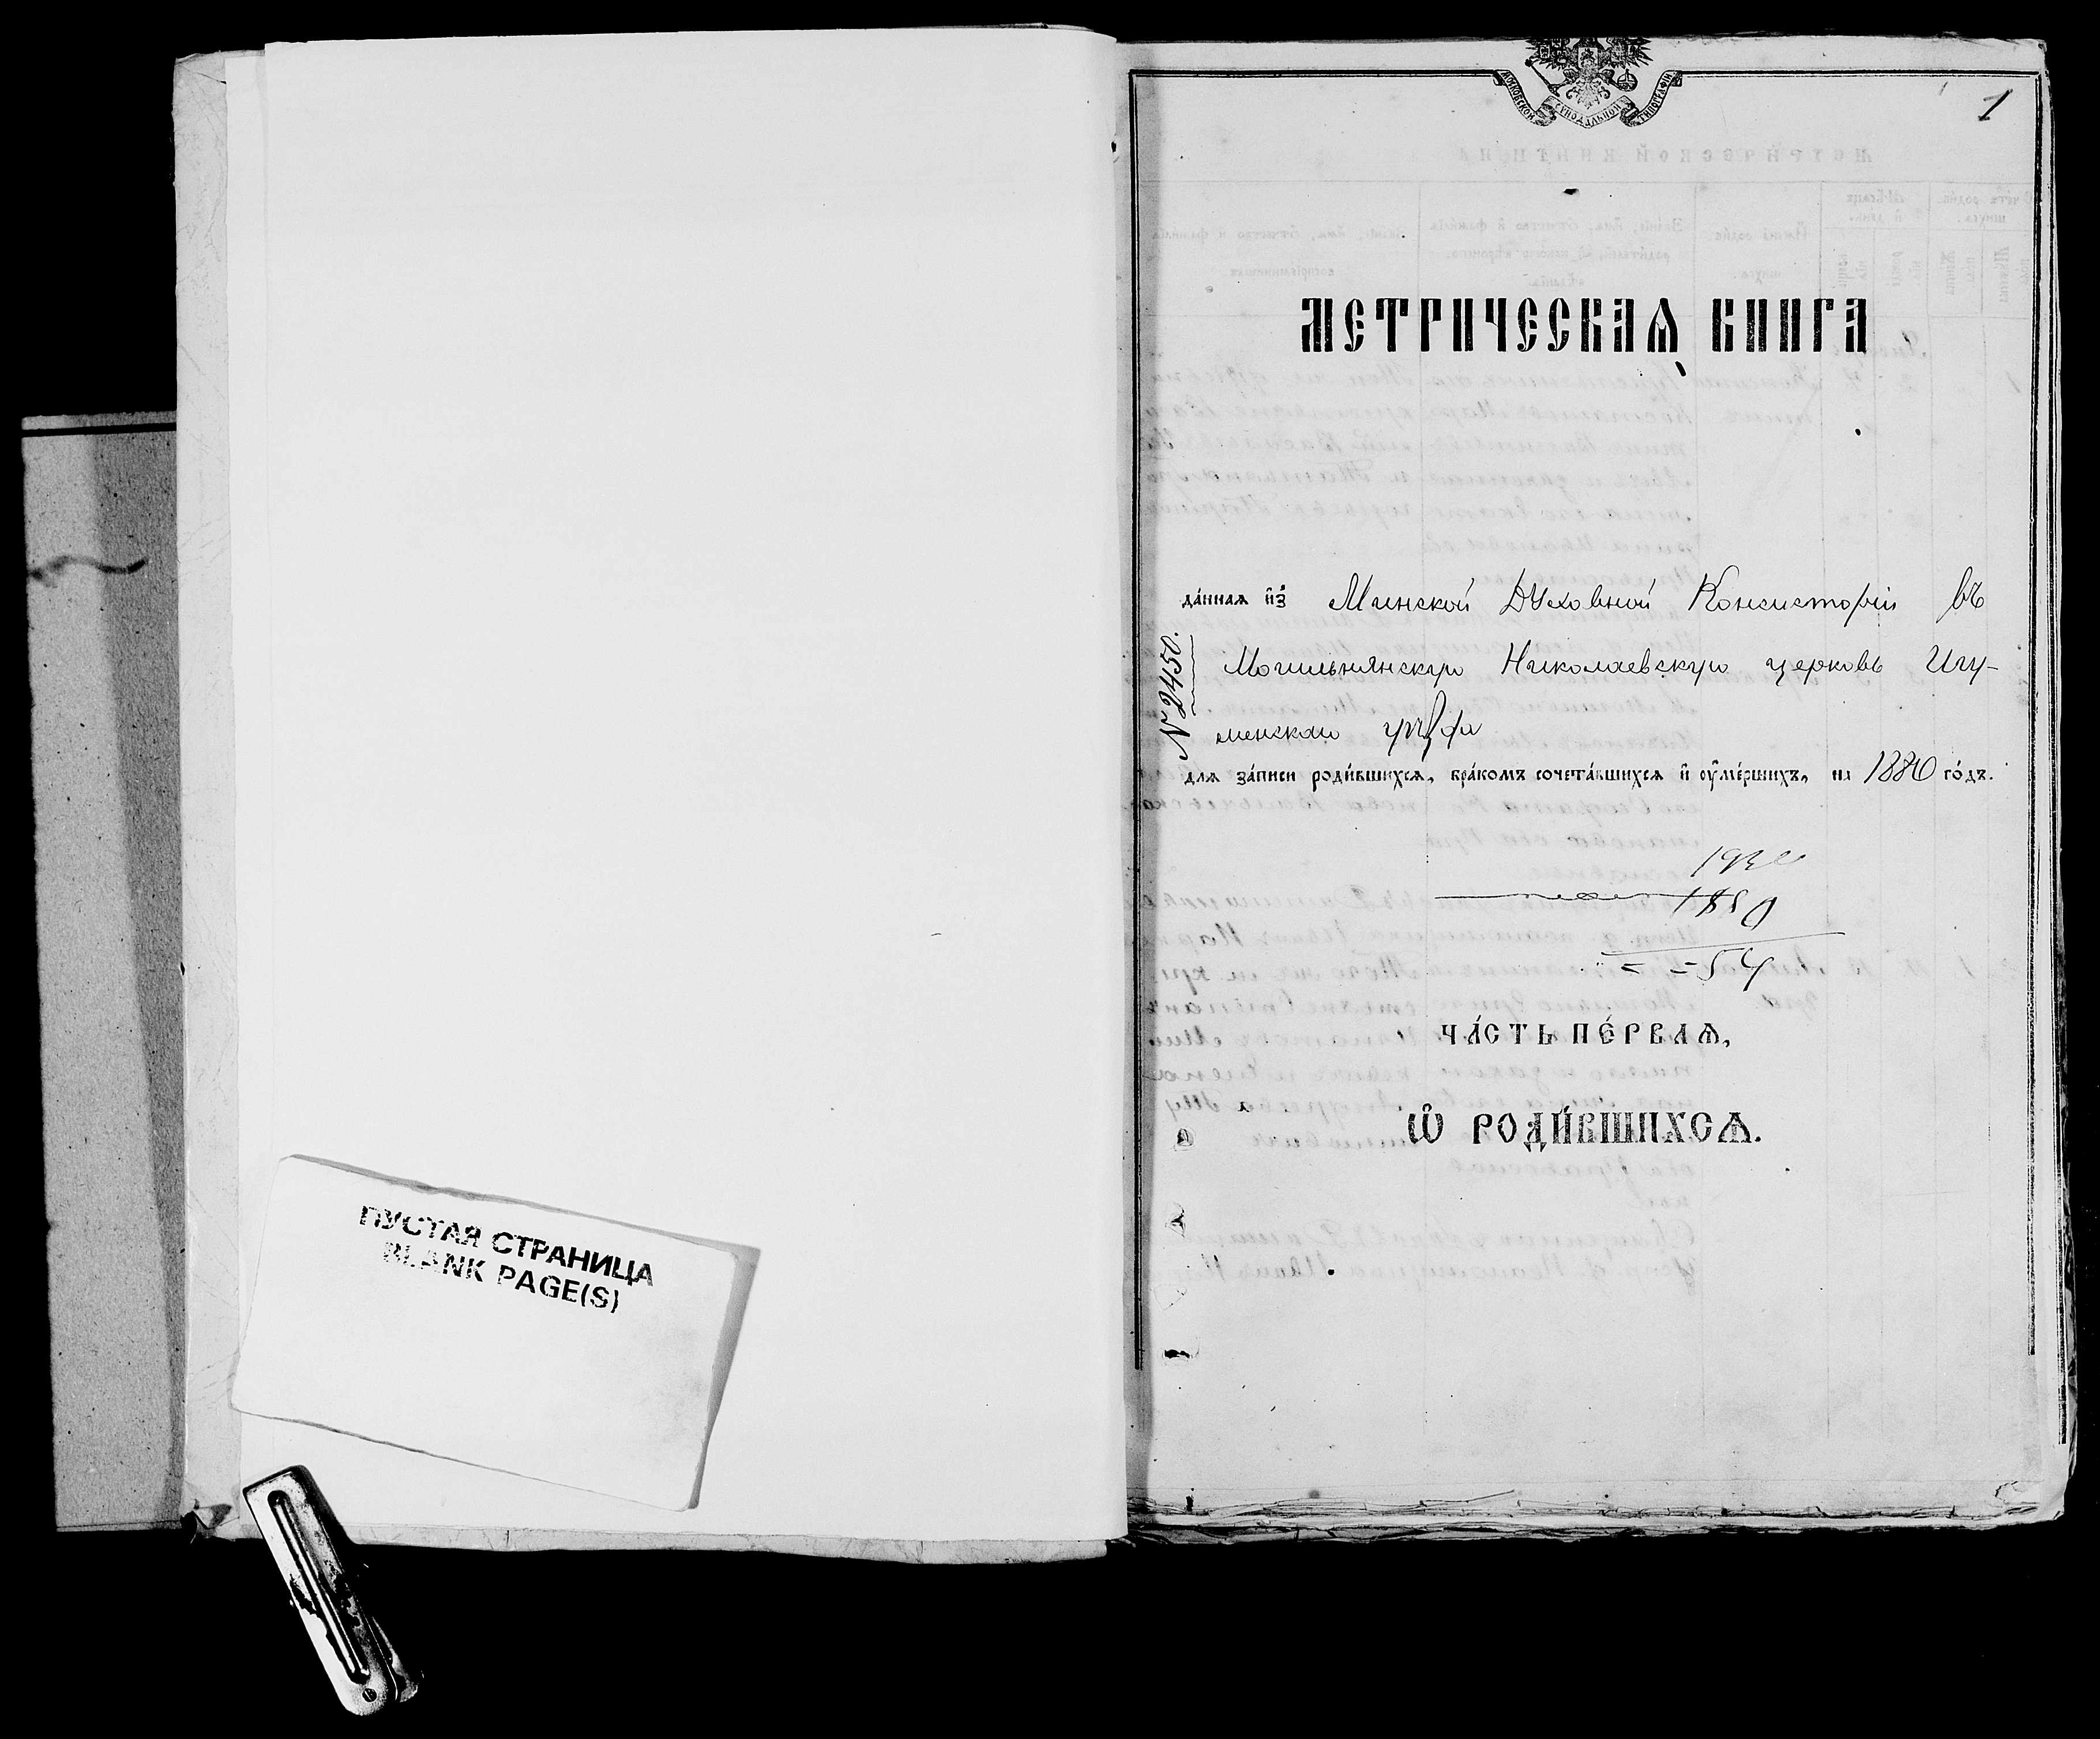 ПУСТАЯ СТРАНИЦА
BLANK PAGE(S)
МОСКОВСКОЙ СѴНОДАЛЬНОЙ ТИПОГРАФІИ
1
МЕТРИЧЕСКАѦ КНИГА
да́ннаѧ и҆з̾ Минской Духовной Консисторіи въ
№ 2450.
Могильнянскую Николаевскую церковь Игу-
менскаго уѣзда
для за́писи роди́вшихсѧ, бра́комъ сочета́вшихсѧ и҆ ᲂу҆ме́ршихъ, на 1880 го́дъ.
1880
54
ЧА́СТЬ ПЕ́РВАѦ,
Ѡ҆ РОДИ́ВШИХСѦ.